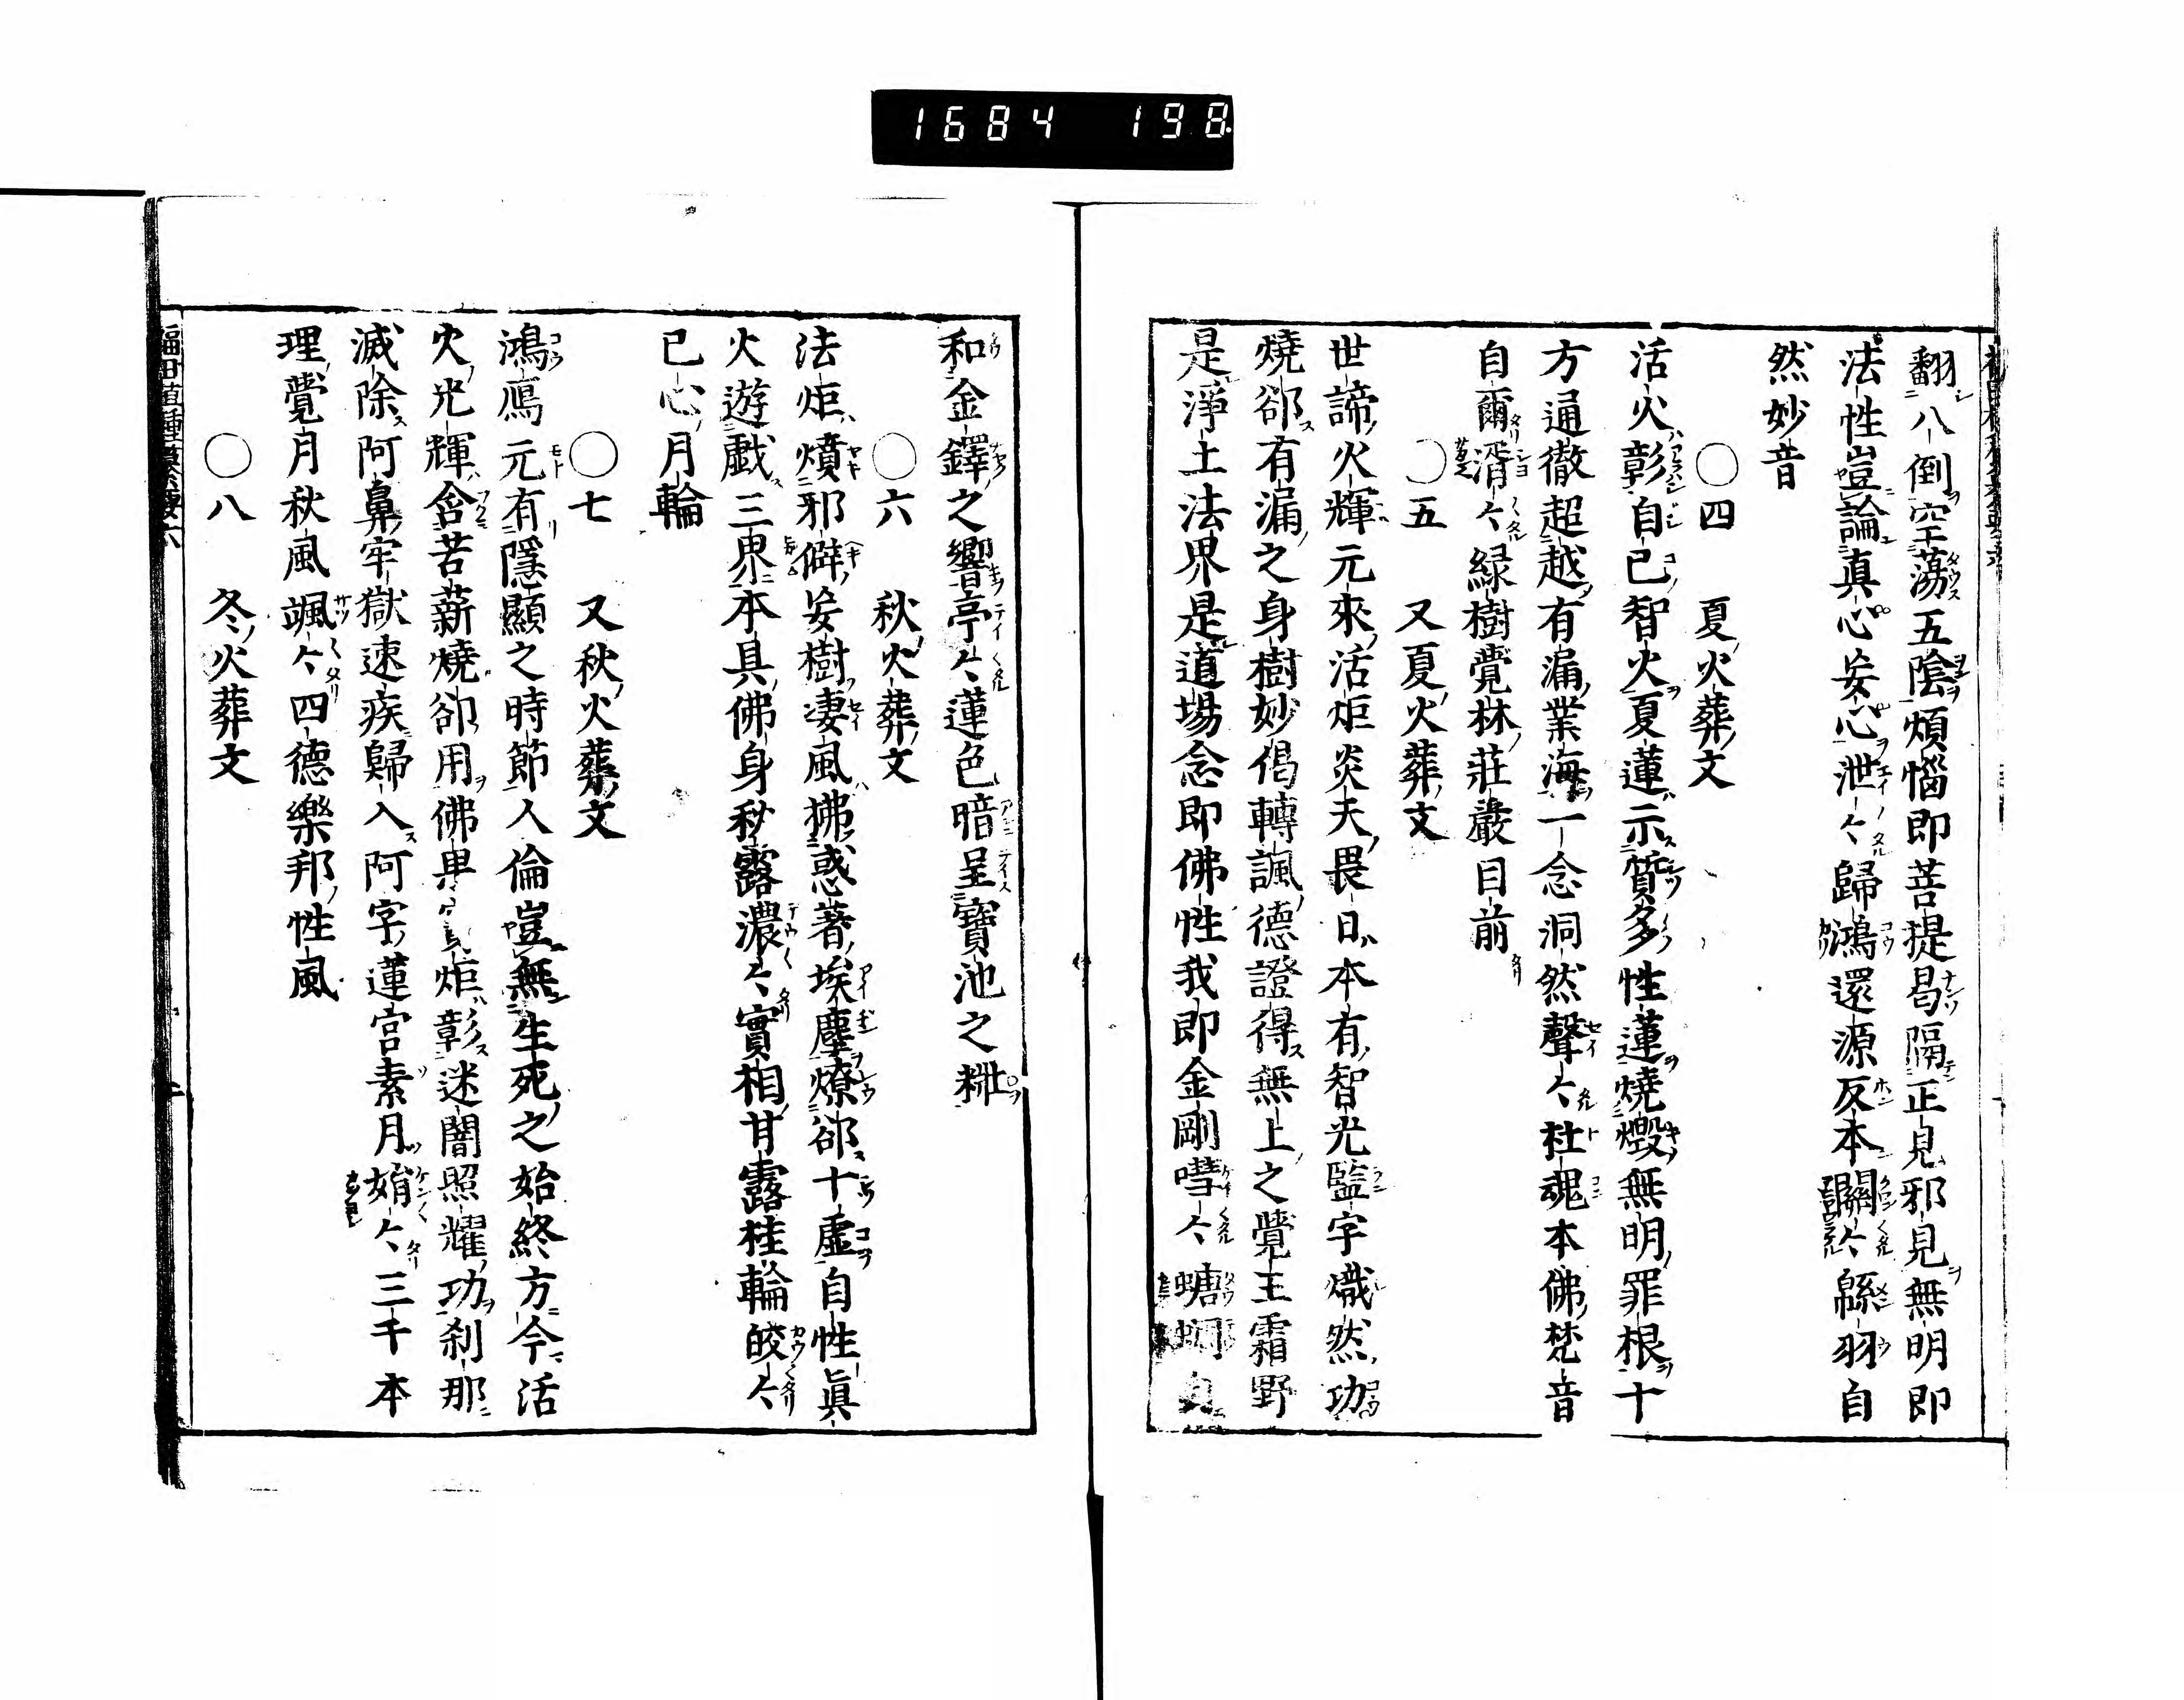 1684 198
翻八倒空蕩五陰煩惱即菩提曷隔正見邪見無明即
法性豈論真心妄心泄々歸鴻還源反本關々緜羽自
然妙音
○四 夏火葬文
活火彰自己智火夏蓮示質多性蓮燒燬無明罪根十
方通徹超越有漏業海一念洞然聲々杜魂本佛梵音
自爾湑々緑樹覺林莊嚴目前
○五 又夏火葬文
世諦火輝元來活炬炎天畏日本有智光監字熾然功
燒卻有漏之身樹妙偈轉諷德證得無上之覺王霜野
是淨土法界是道場念即佛性我即金剛嘒々螗蜩
和金鐸之響亭々蓮色暗呈寶池之粧
○六 秋火葬文
法炬燌邪僻妄樹凄風拂惑著埃塵燎卻十虛自性眞
火遊戲三界本具佛身秋露濃々實相甘露桂輪皎々
已心月輪
○七 又秋火葬文
鴻鴈元有隱顯之時節人倫豈無生死之始終方今活
火光輝含苦薪燒卻用佛果炬彰迷闇照耀功刹那
滅除阿鼻牢獄速疾歸入阿字蓮宮素月娟々三千本
理覺月秋風颯々四德樂邦性風
○八 冬火葬文
福田殖種纂要六